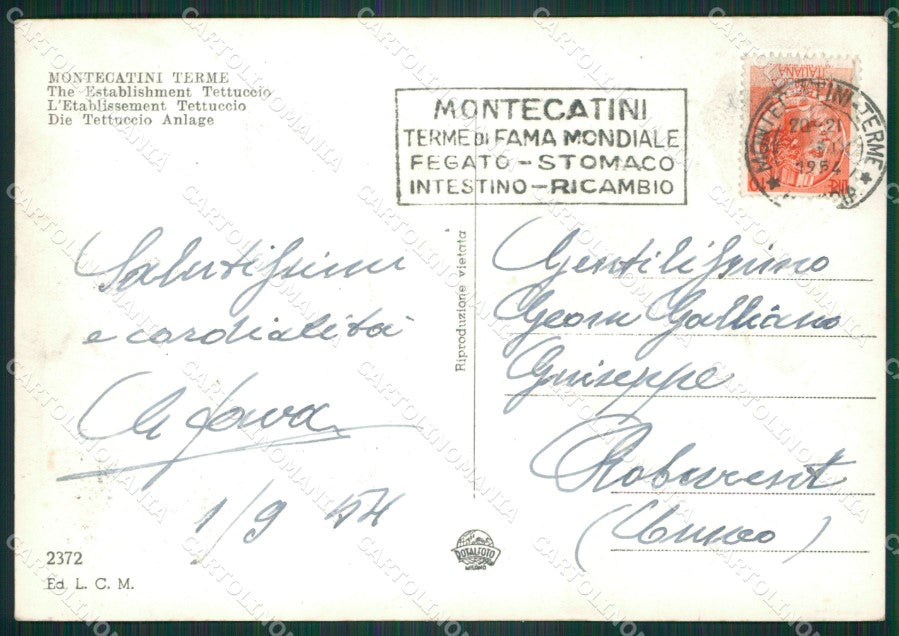 MONTECATINI TERME
The Establishment Tettuccio
L'Etablissement Tettuccio
Die Tettuccio Anlage
MONTECATINI
TERME DI FAMA MONDIALE
FEGATO - STOMACO
INTESTINO - RICAMBIO
ITALIANA
MONTECATINI-TERME
20-21
1954
Salutissimi
e cordialità
1/9 54
Riproduzione vietata
Gentilissimo
Geom Galliano
Giuseppe
Roburent
(Cuneo)
2372
Ed. L. C. M.
ROTALFOTO
MILANO
CARTOLINOMANIA